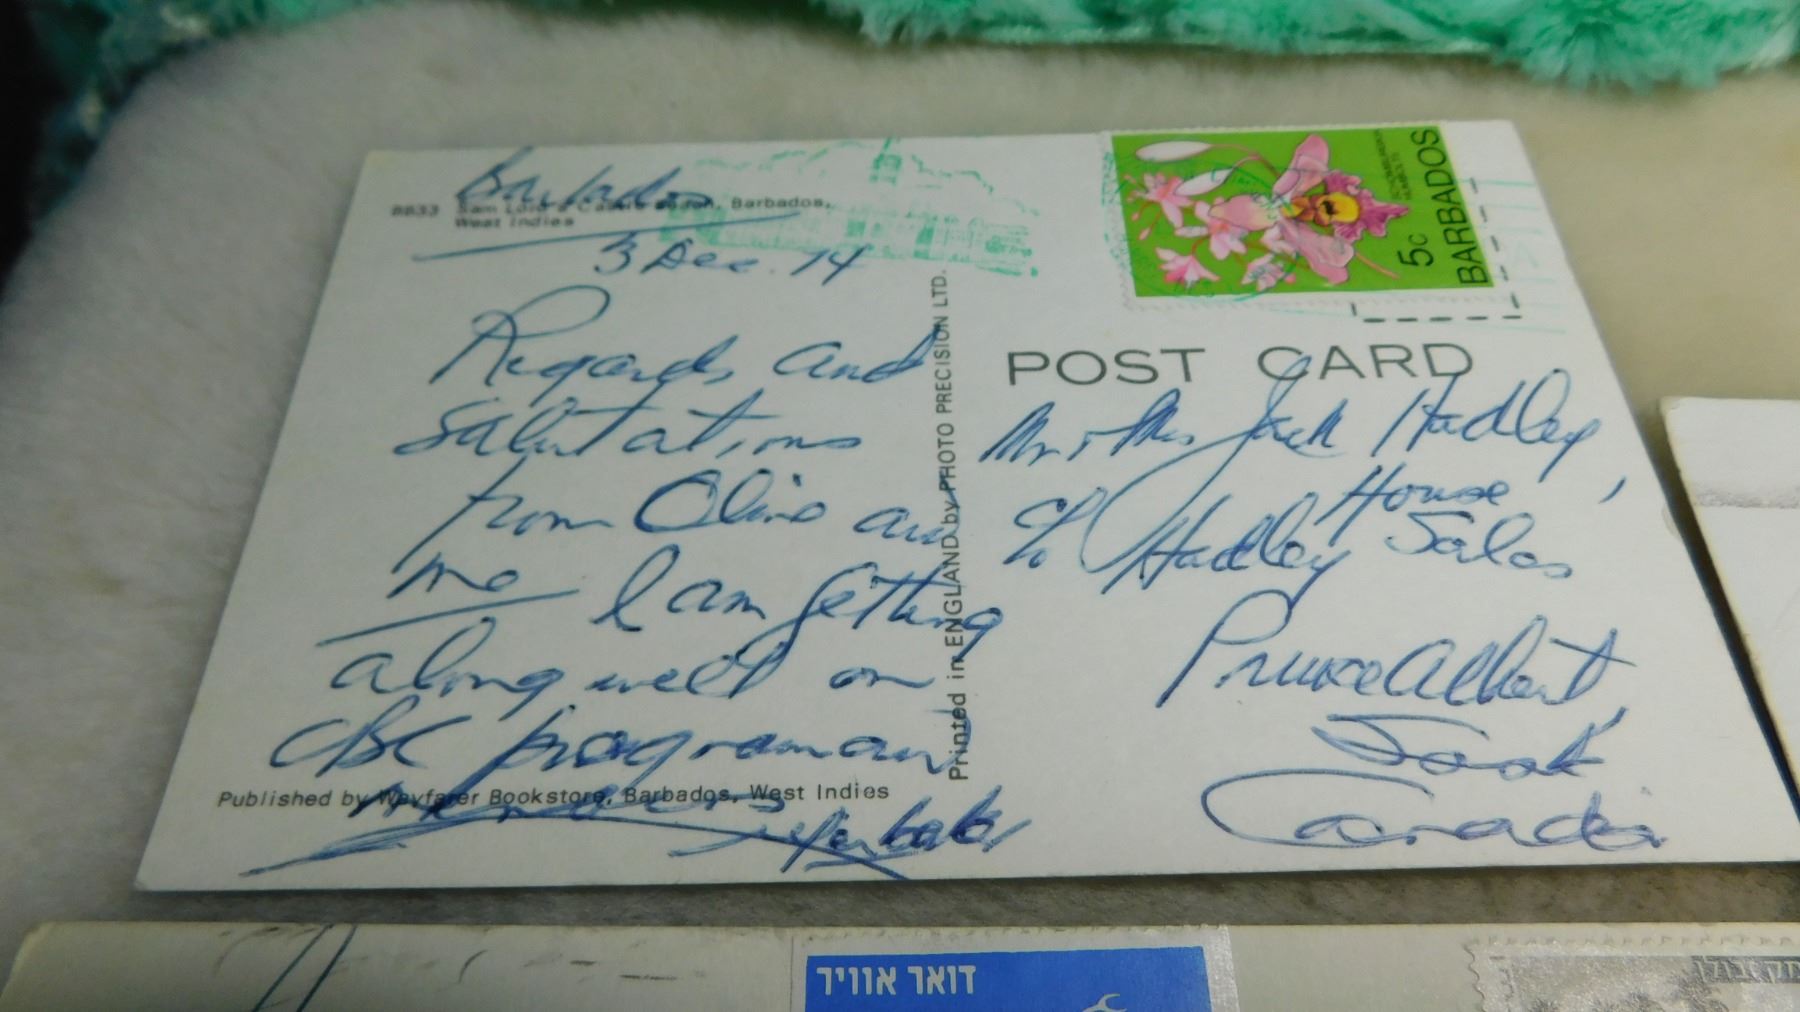 Barbados
8833 Sam Lord's Castle Beach, Barbados,
West Indies
3 Dec. 74
Regards and
Salutations
from Olive and
me I am getting
along well on
CBC program and
Published by Wayfarer Bookstore, Barbados, West Indies
Printed in ENGLAND by PHOTO PRECISION LTD.
5c
BARBADOS
POST CARD
Mr & Mrs Jack Hadley,
c/o Hadley House Sales
Prince Albert,
Sask
Canada
דואר אוויר